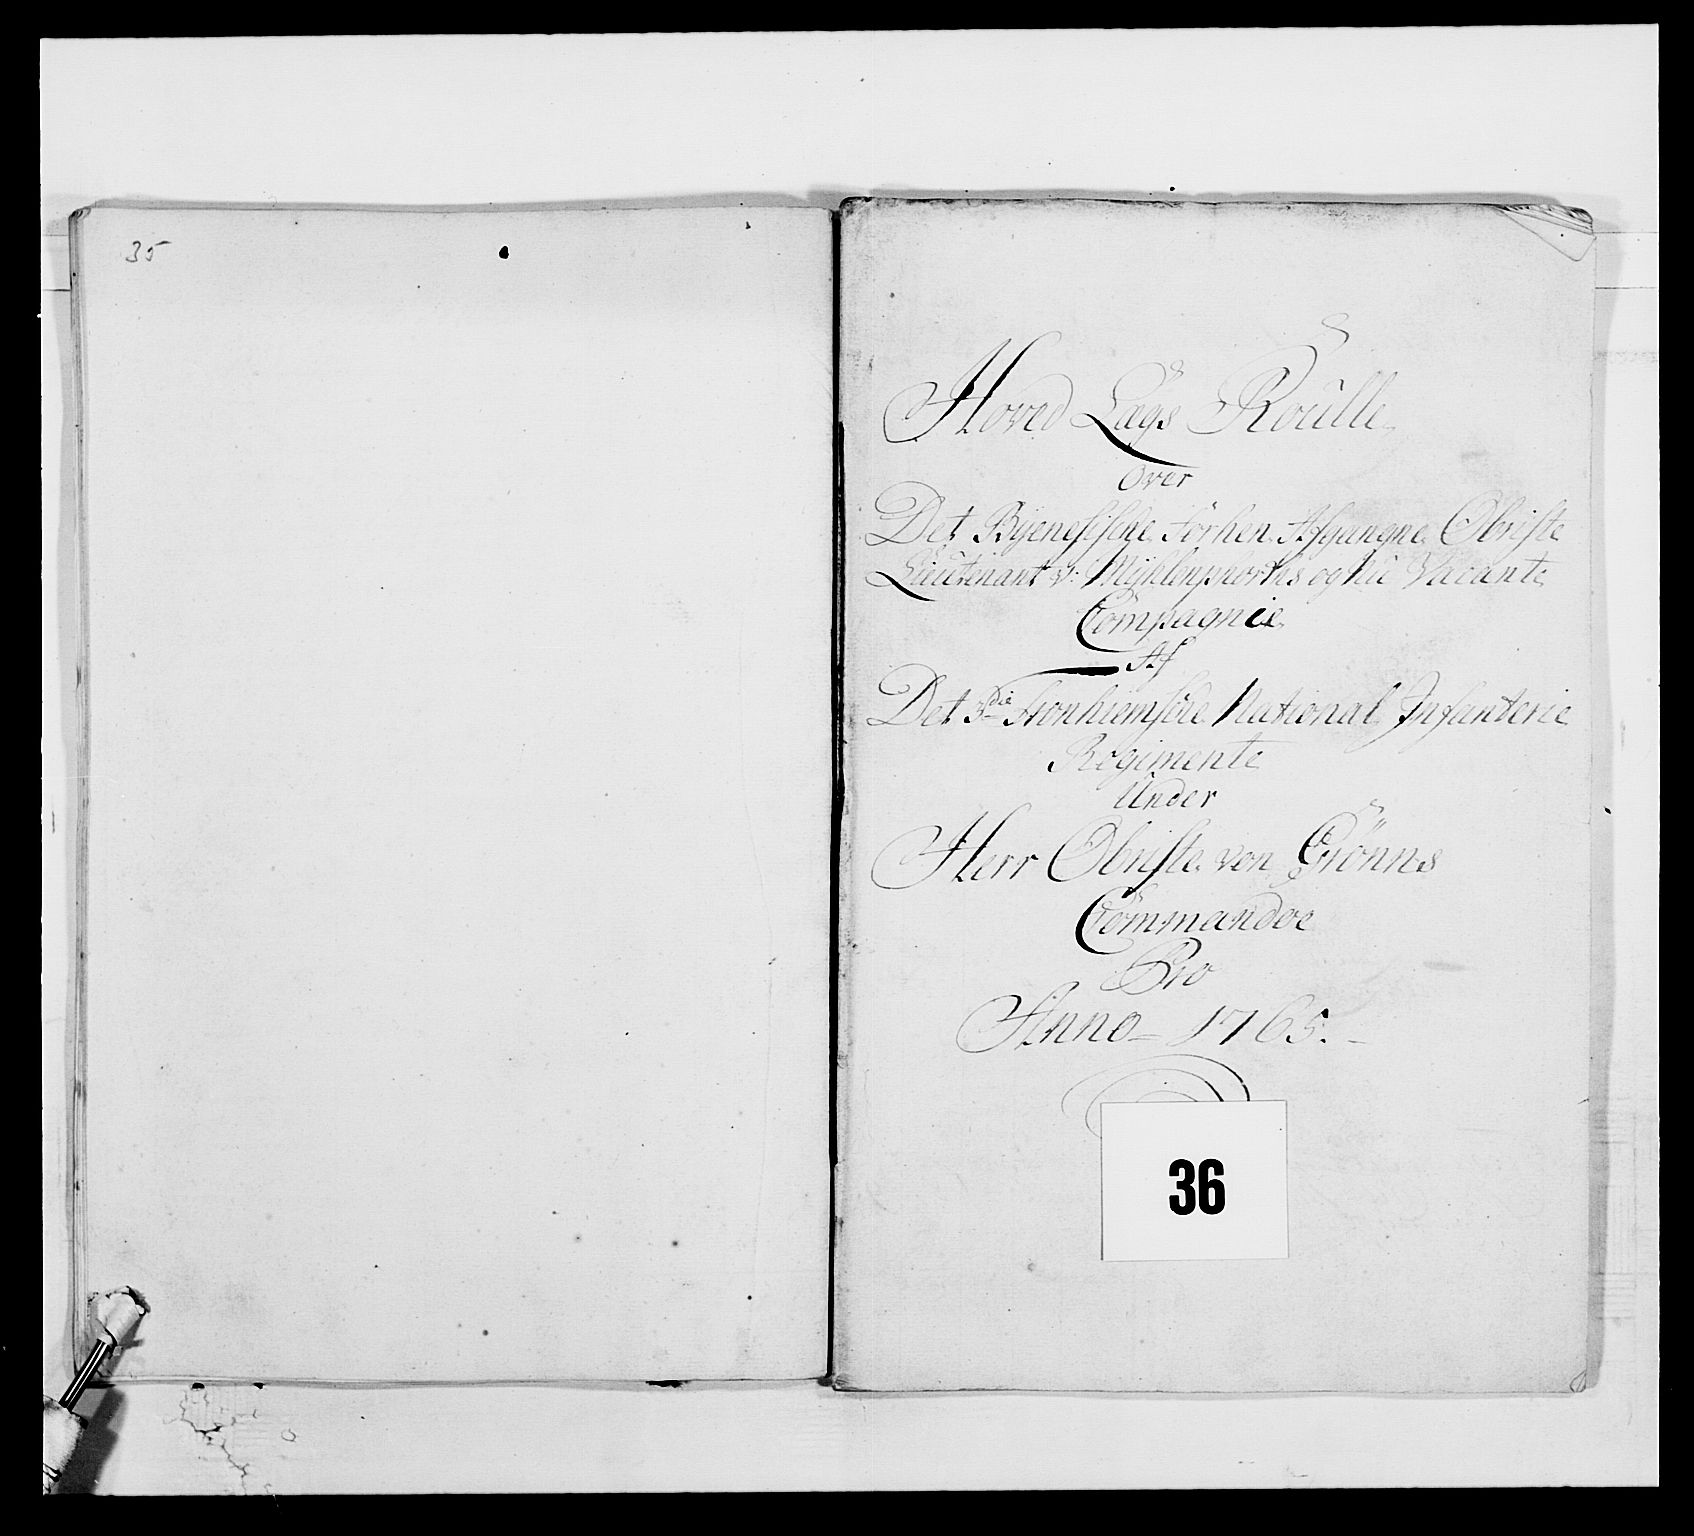 35
Hoved Lægs Roulle
Over
Det Byenesiske forhen Afgangne Obriste
Lieutenant v: Mÿhlenphorths og Nu Vacante
Compagnie
Af
Det 3die Tronhiemsche National Infanterie
Regimente
Under
Herr Obriste von Grönns
Commandoe
Pro
Anno 1765.
36